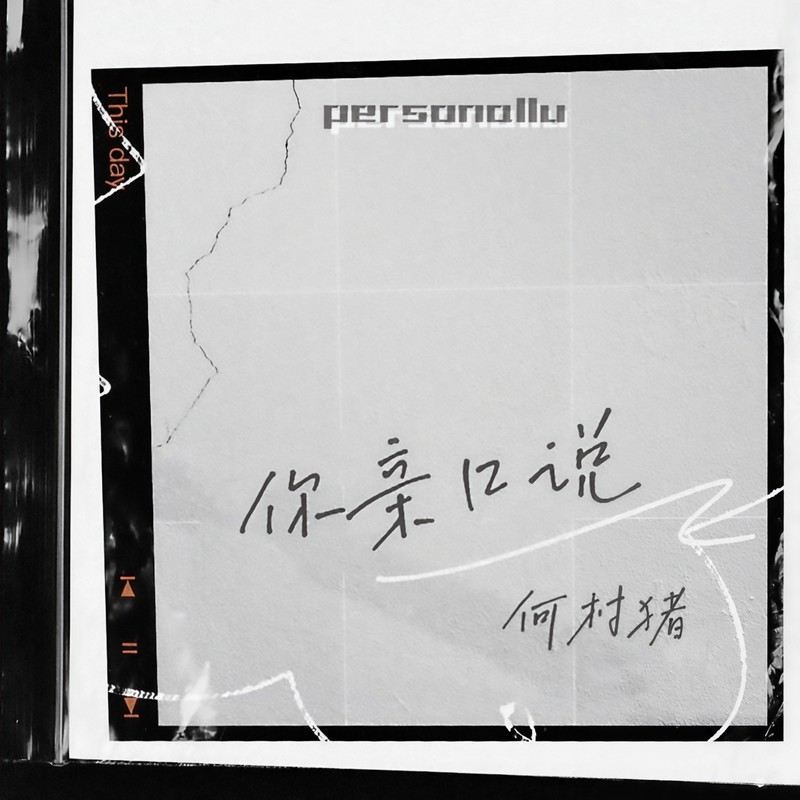 This day
personallu
你亲口说
何村猪